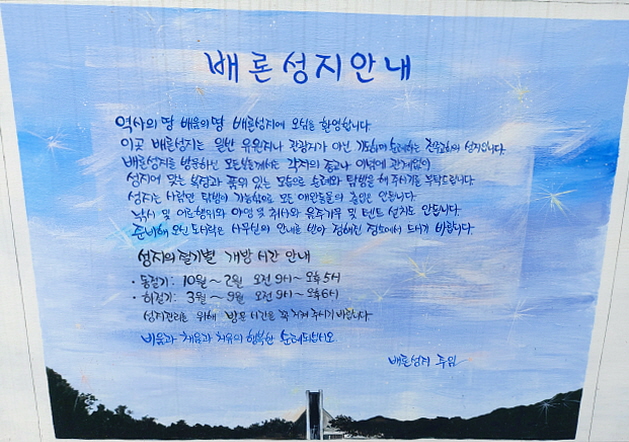 배론성지안내
역사의 땅 배움의 땅 배론성지에 오심을 환영합니다.
이곳 배론성지는 일반 유원지나 관광지가 아닌 기도하며 순례하는 천주교회의 성지입니다.
배론성지를 방문하신 모든분들께서는 각자의 종교나 이념에 관계없이
성지에 맞는 복장과 품위 있는 모습으로 순례와 탐방을 해 주시기를 부탁드립니다.
성지는 사람만 탐방이 가능하므로 모든 애완동물의 출입은 안됩니다.
낚시 및 어로행위와 야영 및 취사와 음주가무 및 텐트 설치도 안됩니다.
준비해 오신 도시락은 사무실의 안내를 받아 정해진 장소에서 드시기 바랍니다.
성지의 절기별 개방 시간 안내
· 동절기: 10월 ~ 2월 오전 9시 ~ 오후 5시
· 하절기: 3월 ~ 9월 오전 9시 ~ 오후 6시
성지관리를 위해 방문 시간을 꼭 지켜 주시기 바랍니다
비움과 채움과 치유의 행복한 순례되십시오
배론성지 주임